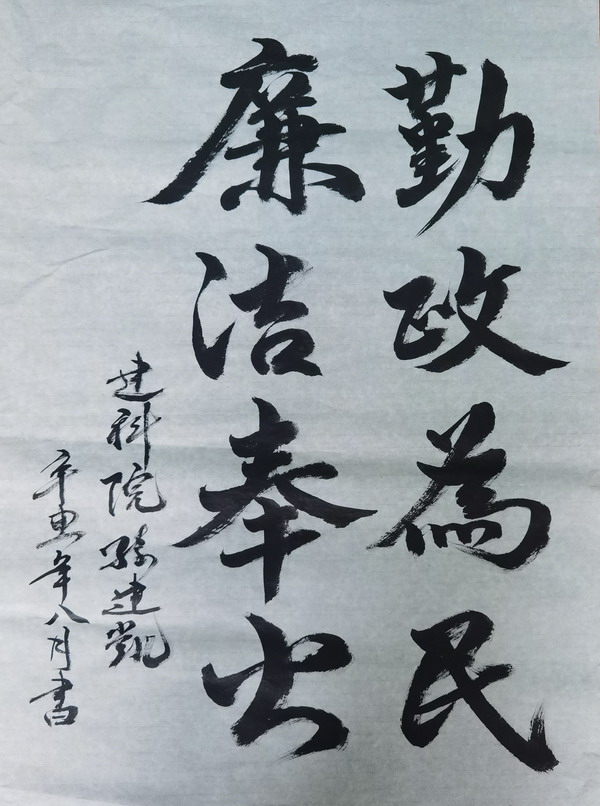 勤政為民
廉洁奉公
建科院孫建凯
辛丑年八月書